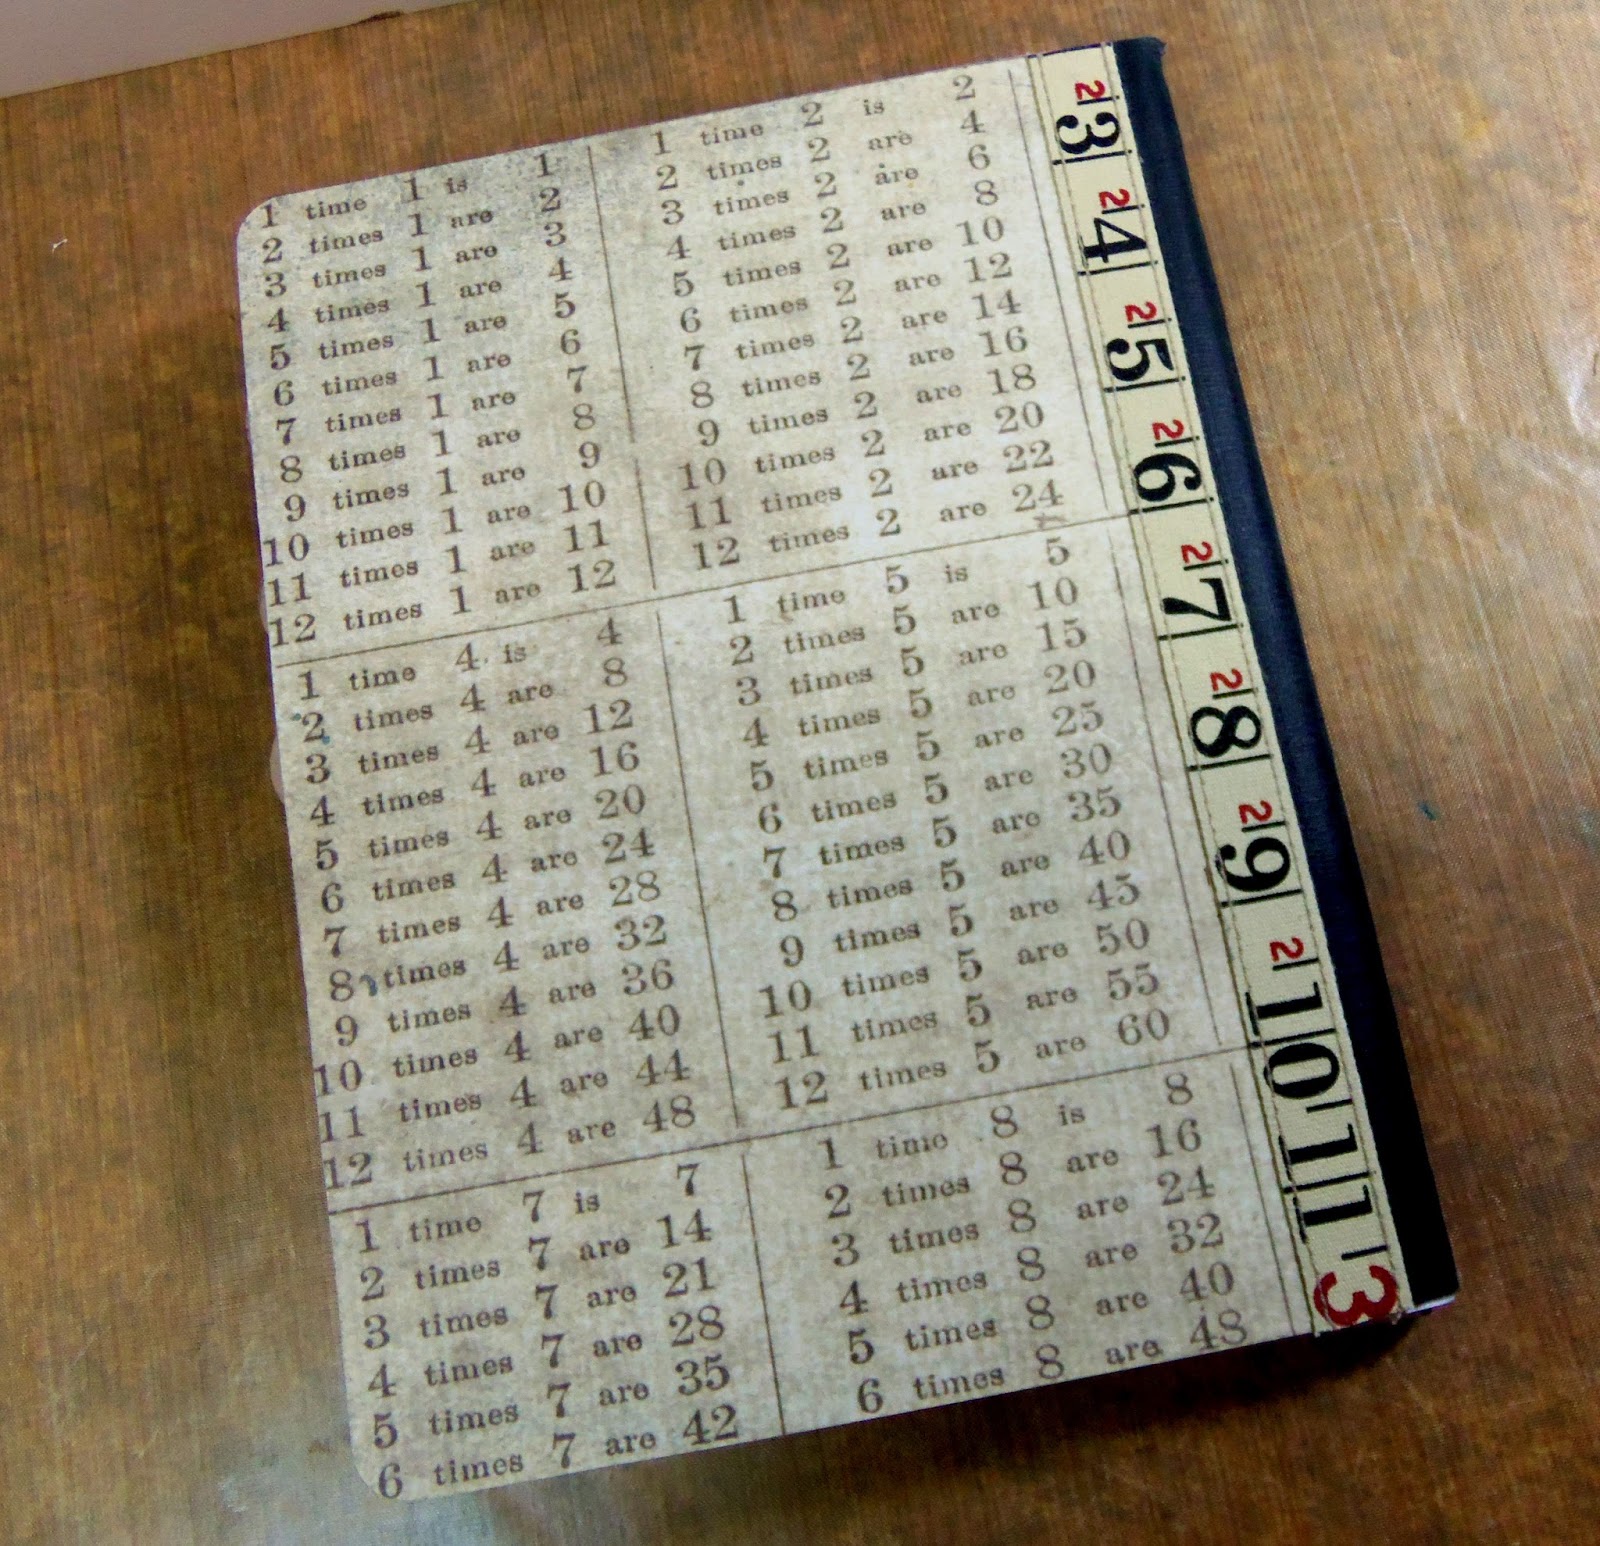 1 time 1 is 1
2 times 1 are 2
3 times 1 are 3
4 times 1 are 4
5 times 1 are 5
6 times 1 are 6
7 times 1 are 7
8 times 1 are 8
9 times 1 are 9
10 times 1 are 10
11 times 1 are 11
12 times 1 are 12
1 time 2 is 2
2 times 2 are 4
3 times 2 are 6
4 times 2 are 8
5 times 2 are 10
6 times 2 are 12
7 times 2 are 14
8 times 2 are 16
9 times 2 are 18
10 times 2 are 20
11 times 2 are 22
12 times 2 are 24
1 time 4 is 4
2 times 4 are 8
3 times 4 are 12
4 times 4 are 16
5 times 4 are 20
6 times 4 are 24
7 times 4 are 28
8 times 4 are 32
9 times 4 are 36
10 times 4 are 40
11 times 4 are 44
12 times 4 are 48
1 time 5 is 5
2 times 5 are 10
3 times 5 are 15
4 times 5 are 20
5 times 5 are 25
6 times 5 are 30
7 times 5 are 35
8 times 5 are 40
9 times 5 are 45
10 times 5 are 50
11 times 5 are 55
12 times 5 are 60
1 time 7 is 7
2 times 7 are 14
3 times 7 are 21
4 times 7 are 28
5 times 7 are 35
6 times 7 are 42
1 time 8 is 8
2 times 8 are 16
3 times 8 are 24
4 times 8 are 32
5 times 8 are 40
6 times 8 are 48
2 3 2 4 2 5 2 6 2 7 2 8 2 9 2 10 11 3